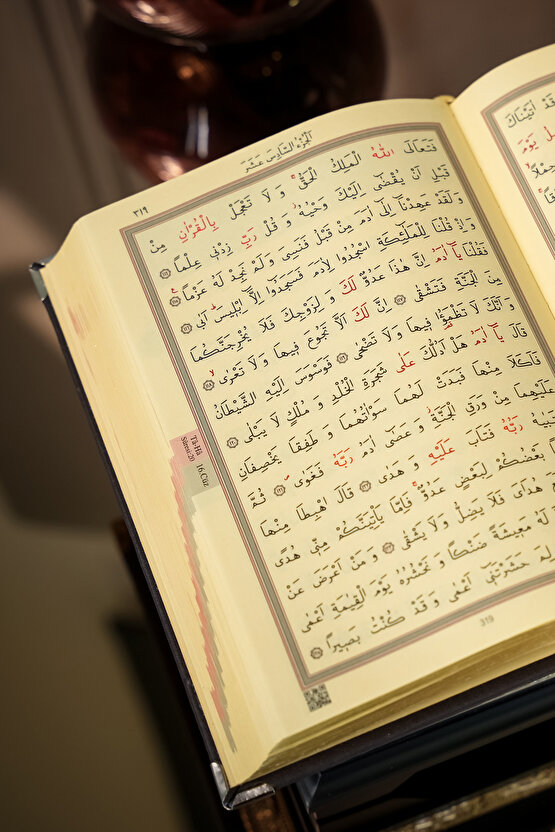 اَلْجُزْءُ السَّادِسَ عَشَرَ
٣١٩
فَتَعَالَى اللّٰهُ الْمَلِكُ الْحَقُّ وَلَا تَعْجَلْ بِالْقُرْاٰنِ مِنْ
قَبْلِ اَنْ يُقْضٰٓى اِلَيْكَ وَحْيُهُ وَقُلْ رَبِّ زِدْنٖي عِلْمًا ﴿١١٤﴾
وَلَقَدْ عَهِدْنَٓا اِلٰٓى اٰدَمَ مِنْ قَبْلُ فَنَسِيَ وَلَمْ نَجِدْ لَهُ عَزْمًا ﴿١١٥﴾
وَاِذْ قُلْنَا لِلْمَلٰٓئِكَةِ اسْجُدُوا لِاٰدَمَ فَسَجَدُٓوا اِلَّٓا اِبْلٖيسَ اَبٰى ﴿١١٦﴾
فَقُلْنَا يَٓا اٰدَمُ اِنَّ هٰذَا عَدُوٌّ لَكَ وَلِزَوْجِكَ فَلَا يُخْرِجَنَّكُمَا
مِنَ الْجَنَّةِ فَتَشْقٰى ﴿١١٧﴾ اِنَّ لَكَ اَلَّا تَجُوعَ فٖيهَا وَلَا تَعْرٰى ﴿١١٨﴾
وَاَنَّكَ لَا تَظْمَؤُ۬ا فٖيهَا وَلَا تَضْحٰى ﴿١١٩﴾ فَوَسْوَسَ اِلَيْهِ الشَّيْطَانُ
قَالَ يَٓا اٰدَمُ هَلْ اَدُلُّكَ عَلٰى شَجَرَةِ الْخُلْدِ وَمُلْكٍ لَا يَبْلٰى ﴿١٢٠﴾
فَاَكَلَا مِنْهَا فَبَدَتْ لَهُمَا سَوْاٰتُهُمَا وَطَفِقَا يَخْصِفَانِ
عَلَيْهِمَا مِنْ وَرَقِ الْجَنَّةِ وَعَصٰٓى اٰدَمُ رَبَّهُ فَغَوٰى ﴿١٢١﴾ ثُمَّ
رَبُّهُ فَتَابَ عَلَيْهِ وَهَدٰى ﴿١٢٢﴾ قَالَ اهْبِطَا مِنْهَا
بَعْضُكُمْ لِبَعْضٍ عَدُوٌّ فَاِمَّا يَأْتِيَنَّكُمْ مِنّٖي هُدًى
هُدَايَ فَلَا يَضِلُّ وَلَا يَشْقٰى ﴿١٢٣﴾ وَمَنْ اَعْرَضَ عَنْ
لَهُ مَعٖيشَةً ضَنْكًا وَنَحْشُرُهُ يَوْمَ الْقِيٰمَةِ اَعْمٰى
لِمَ حَشَرْتَنٖٓي اَعْمٰى وَقَدْ كُنْتُ بَصٖيرًا ﴿١٢٥﴾
319
Tâ-Hâ
Sûresi:20
16.Cüz
قَدْ اٰتَيْنَاكَ
يَوْمَ